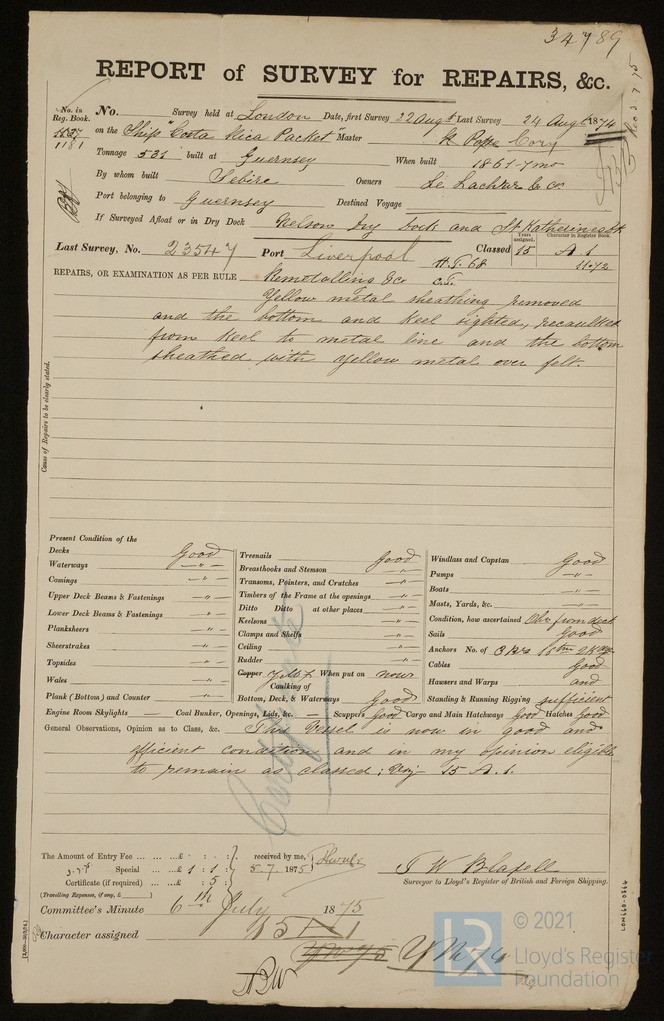 34789
REPORT of SURVEY for REPAIRS, &c.
No. in Reg. Book.
1181
No. Survey held at London Date, first Survey 22 Augt Last Survey 24 Augt 1874
on the Ship "Costa Rica Packet" Master
Tonnage 531 built at Guernsey When built 1861-7mo
By whom built Sebire Owners Le Lacheur & Co
Port belonging to Guernsey Destined Voyage
If Surveyed Afloat or in Dry Dock Nelson Dry Dock and St Katherines Dk
Last Survey, No. 23547 Port Liverpool Classed Years assigned. 15 Character in Register Book. A 1
H.T. 68 11.72
REPAIRS, OR EXAMINATION AS PER RULE Remetalling &c C.T.
Yellow metal sheathing removed
and the bottom and keel sighted, recaulked
from keel to metal line and the bottom
sheathed with yellow metal over felt.
Cause of Repairs to be clearly stated.
Present Condition of the
Decks Good
Waterways — " —
Comings — " —
Upper Deck Beams & Fastenings — " —
Lower Deck Beams & Fastenings — " —
Planksheers — " —
Sheerstrakes — " —
Topsides — " —
Wales — " —
Plank (Bottom) and Counter — " —
Treenails Good
Breasthooks and Stemson — " —
Transoms, Pointers, and Crutches — " —
Timbers of the Frame at the openings — " —
Ditto Ditto at other places — " —
Keelsons — " —
Clamps and Shelfs — " —
Ceiling — " —
Rudder — " —
Copper When put on now
Caulking of
Bottom, Deck, & Waterways Good
Windlass and Capstan Good
Pumps — " —
Boats — " —
Masts, Yards, &c. — " —
Condition, how ascertained Obs from deck
Sails Good
Anchors No. of
Cables Good
Hawsers and Warps and
Standing & Running Rigging sufficient
Engine Room Skylights — Coal Bunker, Openings, Lids, &c. — Scuppers Good Cargo and Main Hatchways Good Hatches Good
General Observations, Opinion as to Class, &c. This Vessel is now in good and
efficient condition and in my opinion eligible
to remain as classed; Viz 15 A. 1.
Certificate
The Amount of Entry Fee ... ... ...£ : : received by me,
Special ... ...£ 1 : 1 : 5.7.1875
Certificate (if required) ... ...£ : 5 :
(Travelling Expenses, if any, £ )
Surveyor to Lloyd's Register of British and Foreign Shipping.
Committee's Minute 6th July 1875
Character assigned 15 A 1
LON660-0366
© 2021
LR Lloyd's Register
Foundation